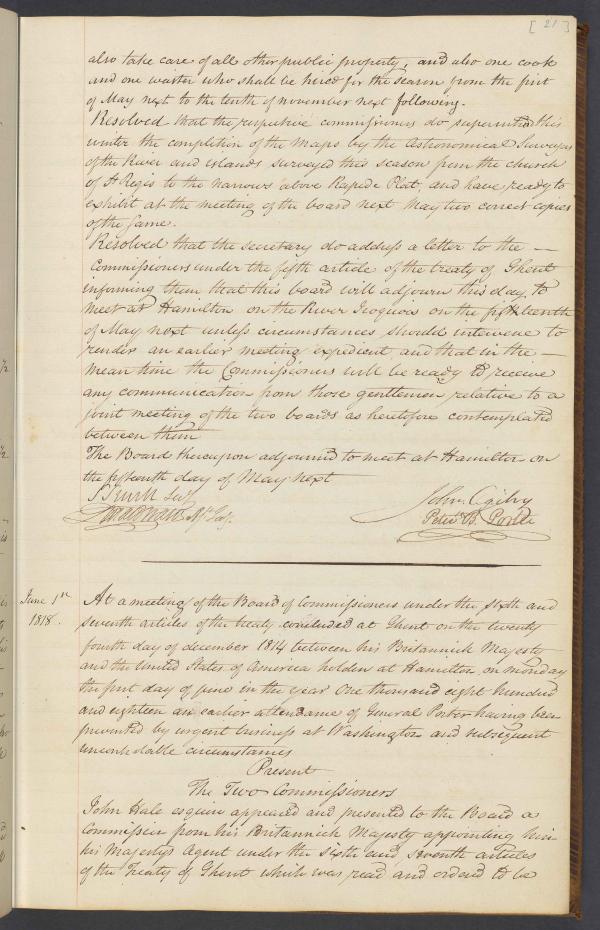 [ 21 ]
also take care of all other public property, and also one cook
and one waiter who shall be hired for the season from the first
of May next to the tenth of november next following.
Resolved that the respective commissioners do superintend this
winter the completion of the Maps by the Astronomical Surveyors
of the River and islands surveyed this season from the church
of St Regis to the narrows above Rapide Plat, and have ready to
exhibit at the meeting of the board next May two correct copies
of the same.
Resolved that the secretary do address a letter to the —
Commissioners under the fifth article of the treaty of Ghent
informing them that this board will adjourn this day to
meet at Hamilton on the River Iroquois on the fifteenth
of May next unless circumstances should intervene to
render an earlier meeting expedient, and that in the —
mean time the Commissioners will be ready to receive
any communication from those gentlemen relative to a
joint meeting of the two boards as heretofore contemplated
between them
The Board thereupon adjourned to meet at Hamilton on
the fifteenth day of May next
Secy
John Ogilvy
Peter B. Porter
June 1st
1818.
At a meeting of the Board of Commissioners under the sixth and
seventh articles of the treaty concluded at Ghent on the twenty
fourth day of december 1814 between his Britannick Majesty
and the United States of America holden at Hamilton on monday
the first day of june in the year One thousand eight hundred
and eighteen an earlier attendance of General Porter having been
prevented by urgent business at Washington and subsequent
uncontrolable circumstances
Present
The Two Commissioners
John Hale esquire appeared and presented to the Board a
Commission from his Britannick Majesty appointing him
his Majestys Agent under the sixth and seventh articles
of the Treaty of Ghent which was read and ordered to be